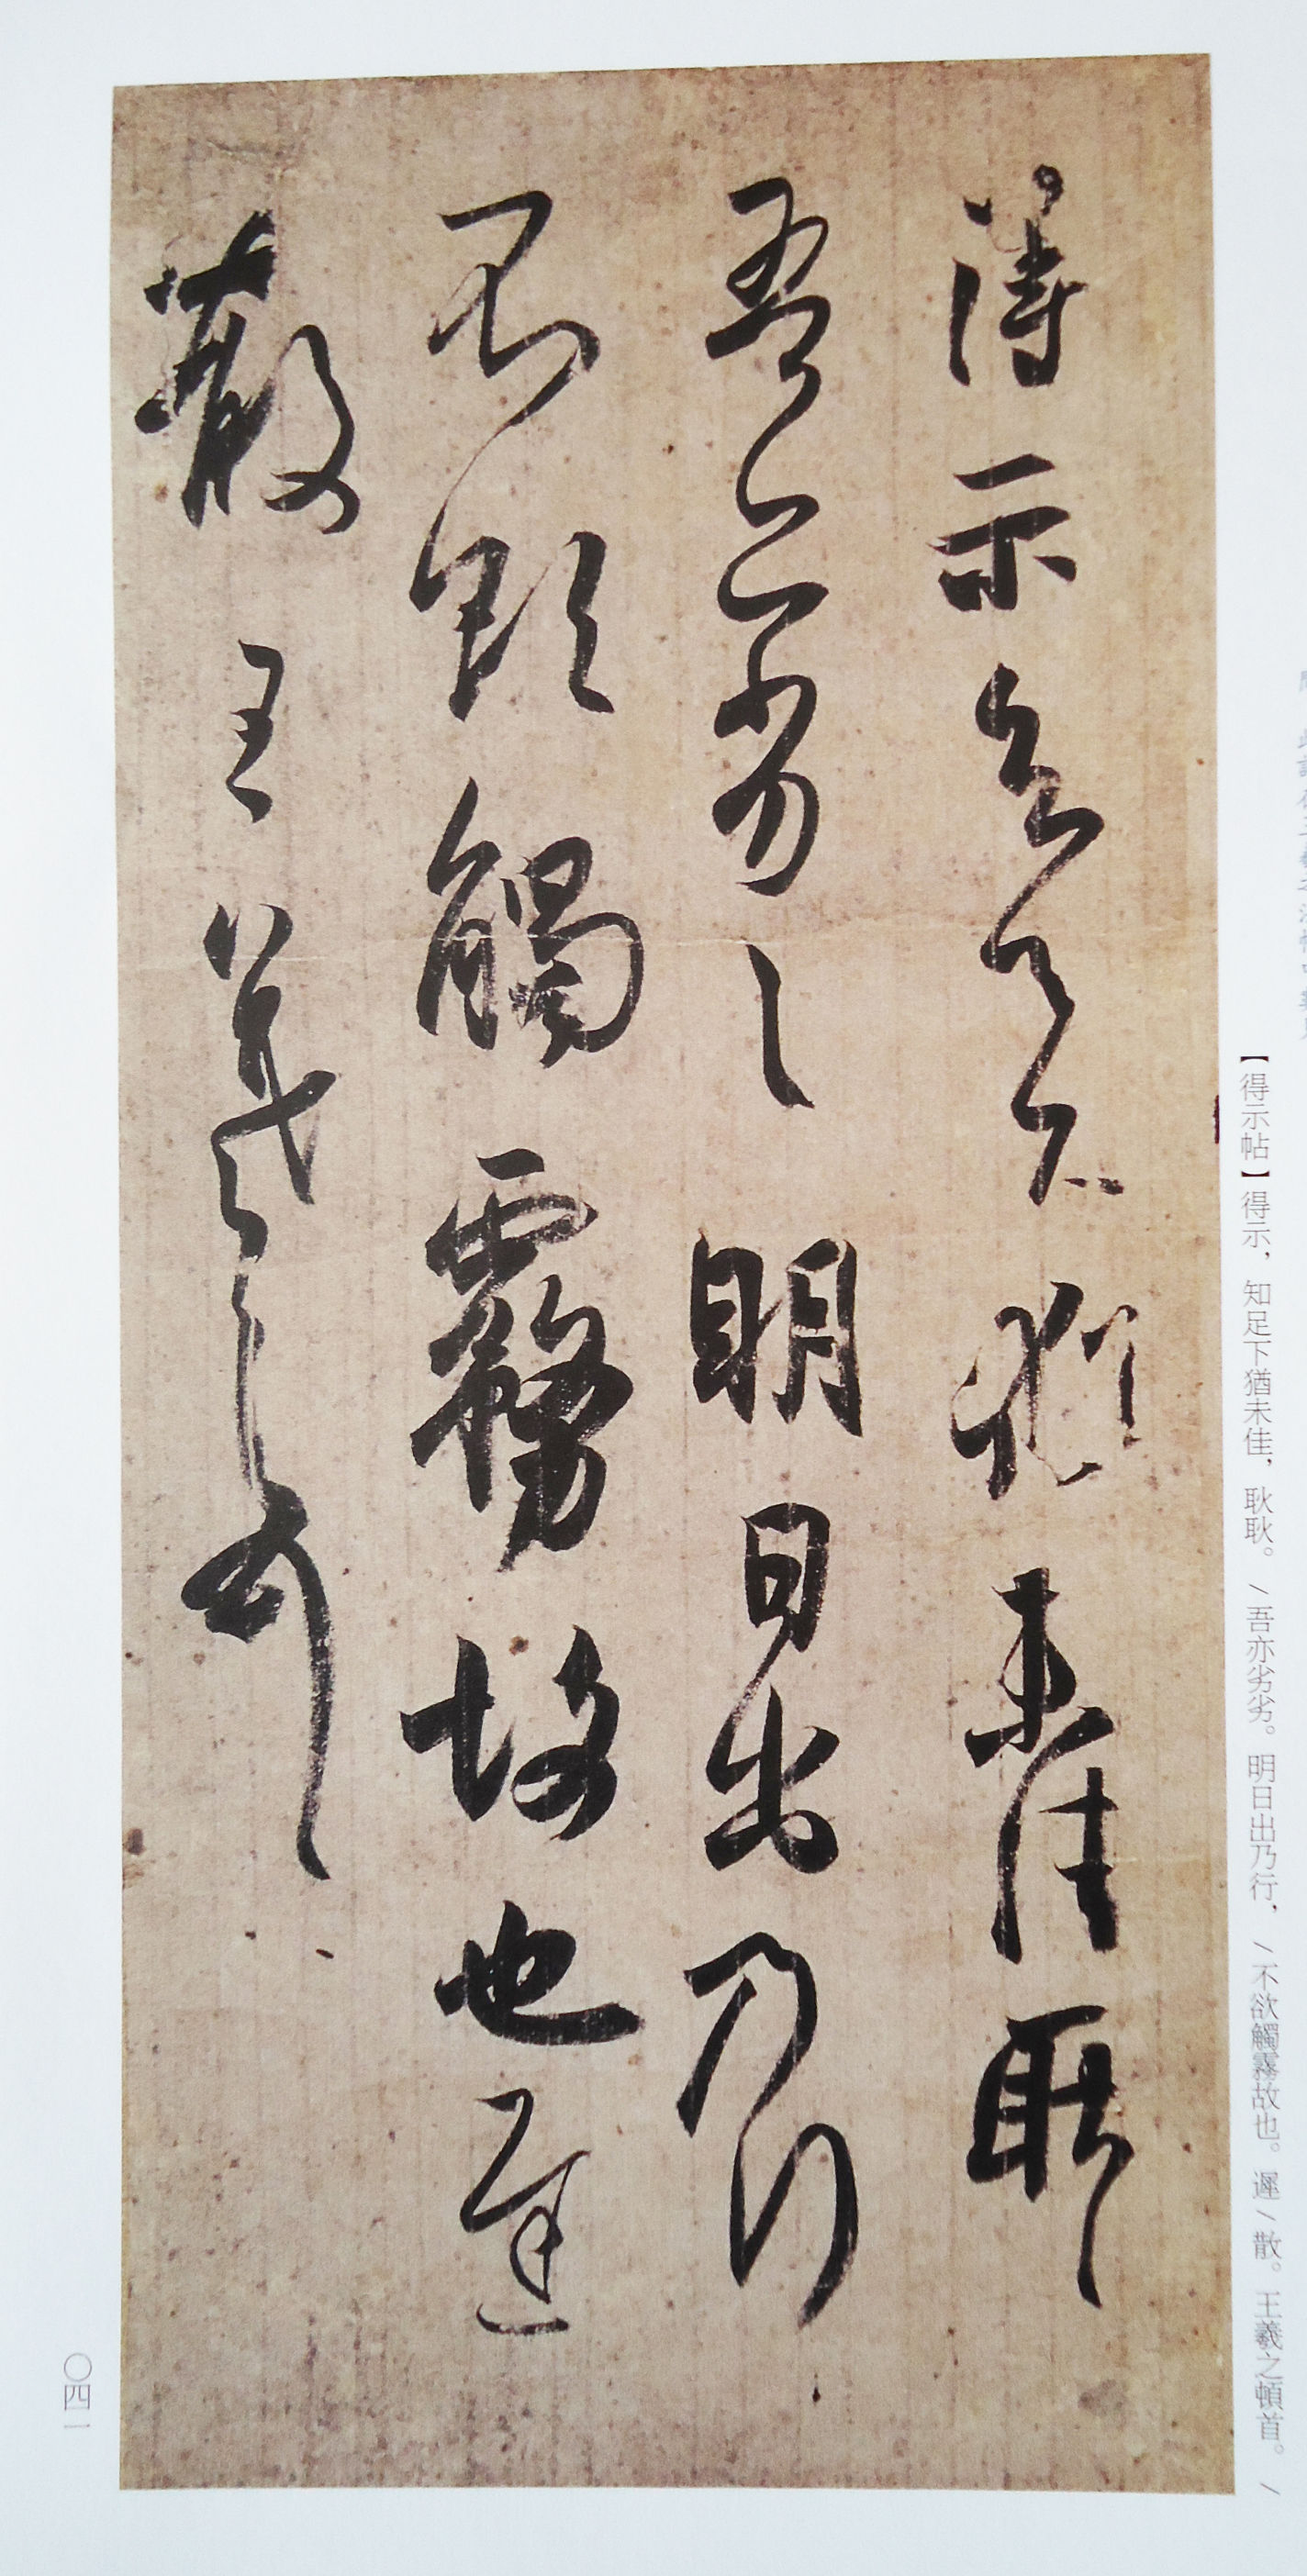 得示知足下猶未佳耿=
吾亦劣= 明日出乃行
不欲觸霧故也遲
散 王羲之頓首
【得示帖】得示，知足下猶未佳，耿耿。/吾亦劣劣。明日出乃行，/不欲觸霧故也。遲/散。王羲之頓首。/
〇四一